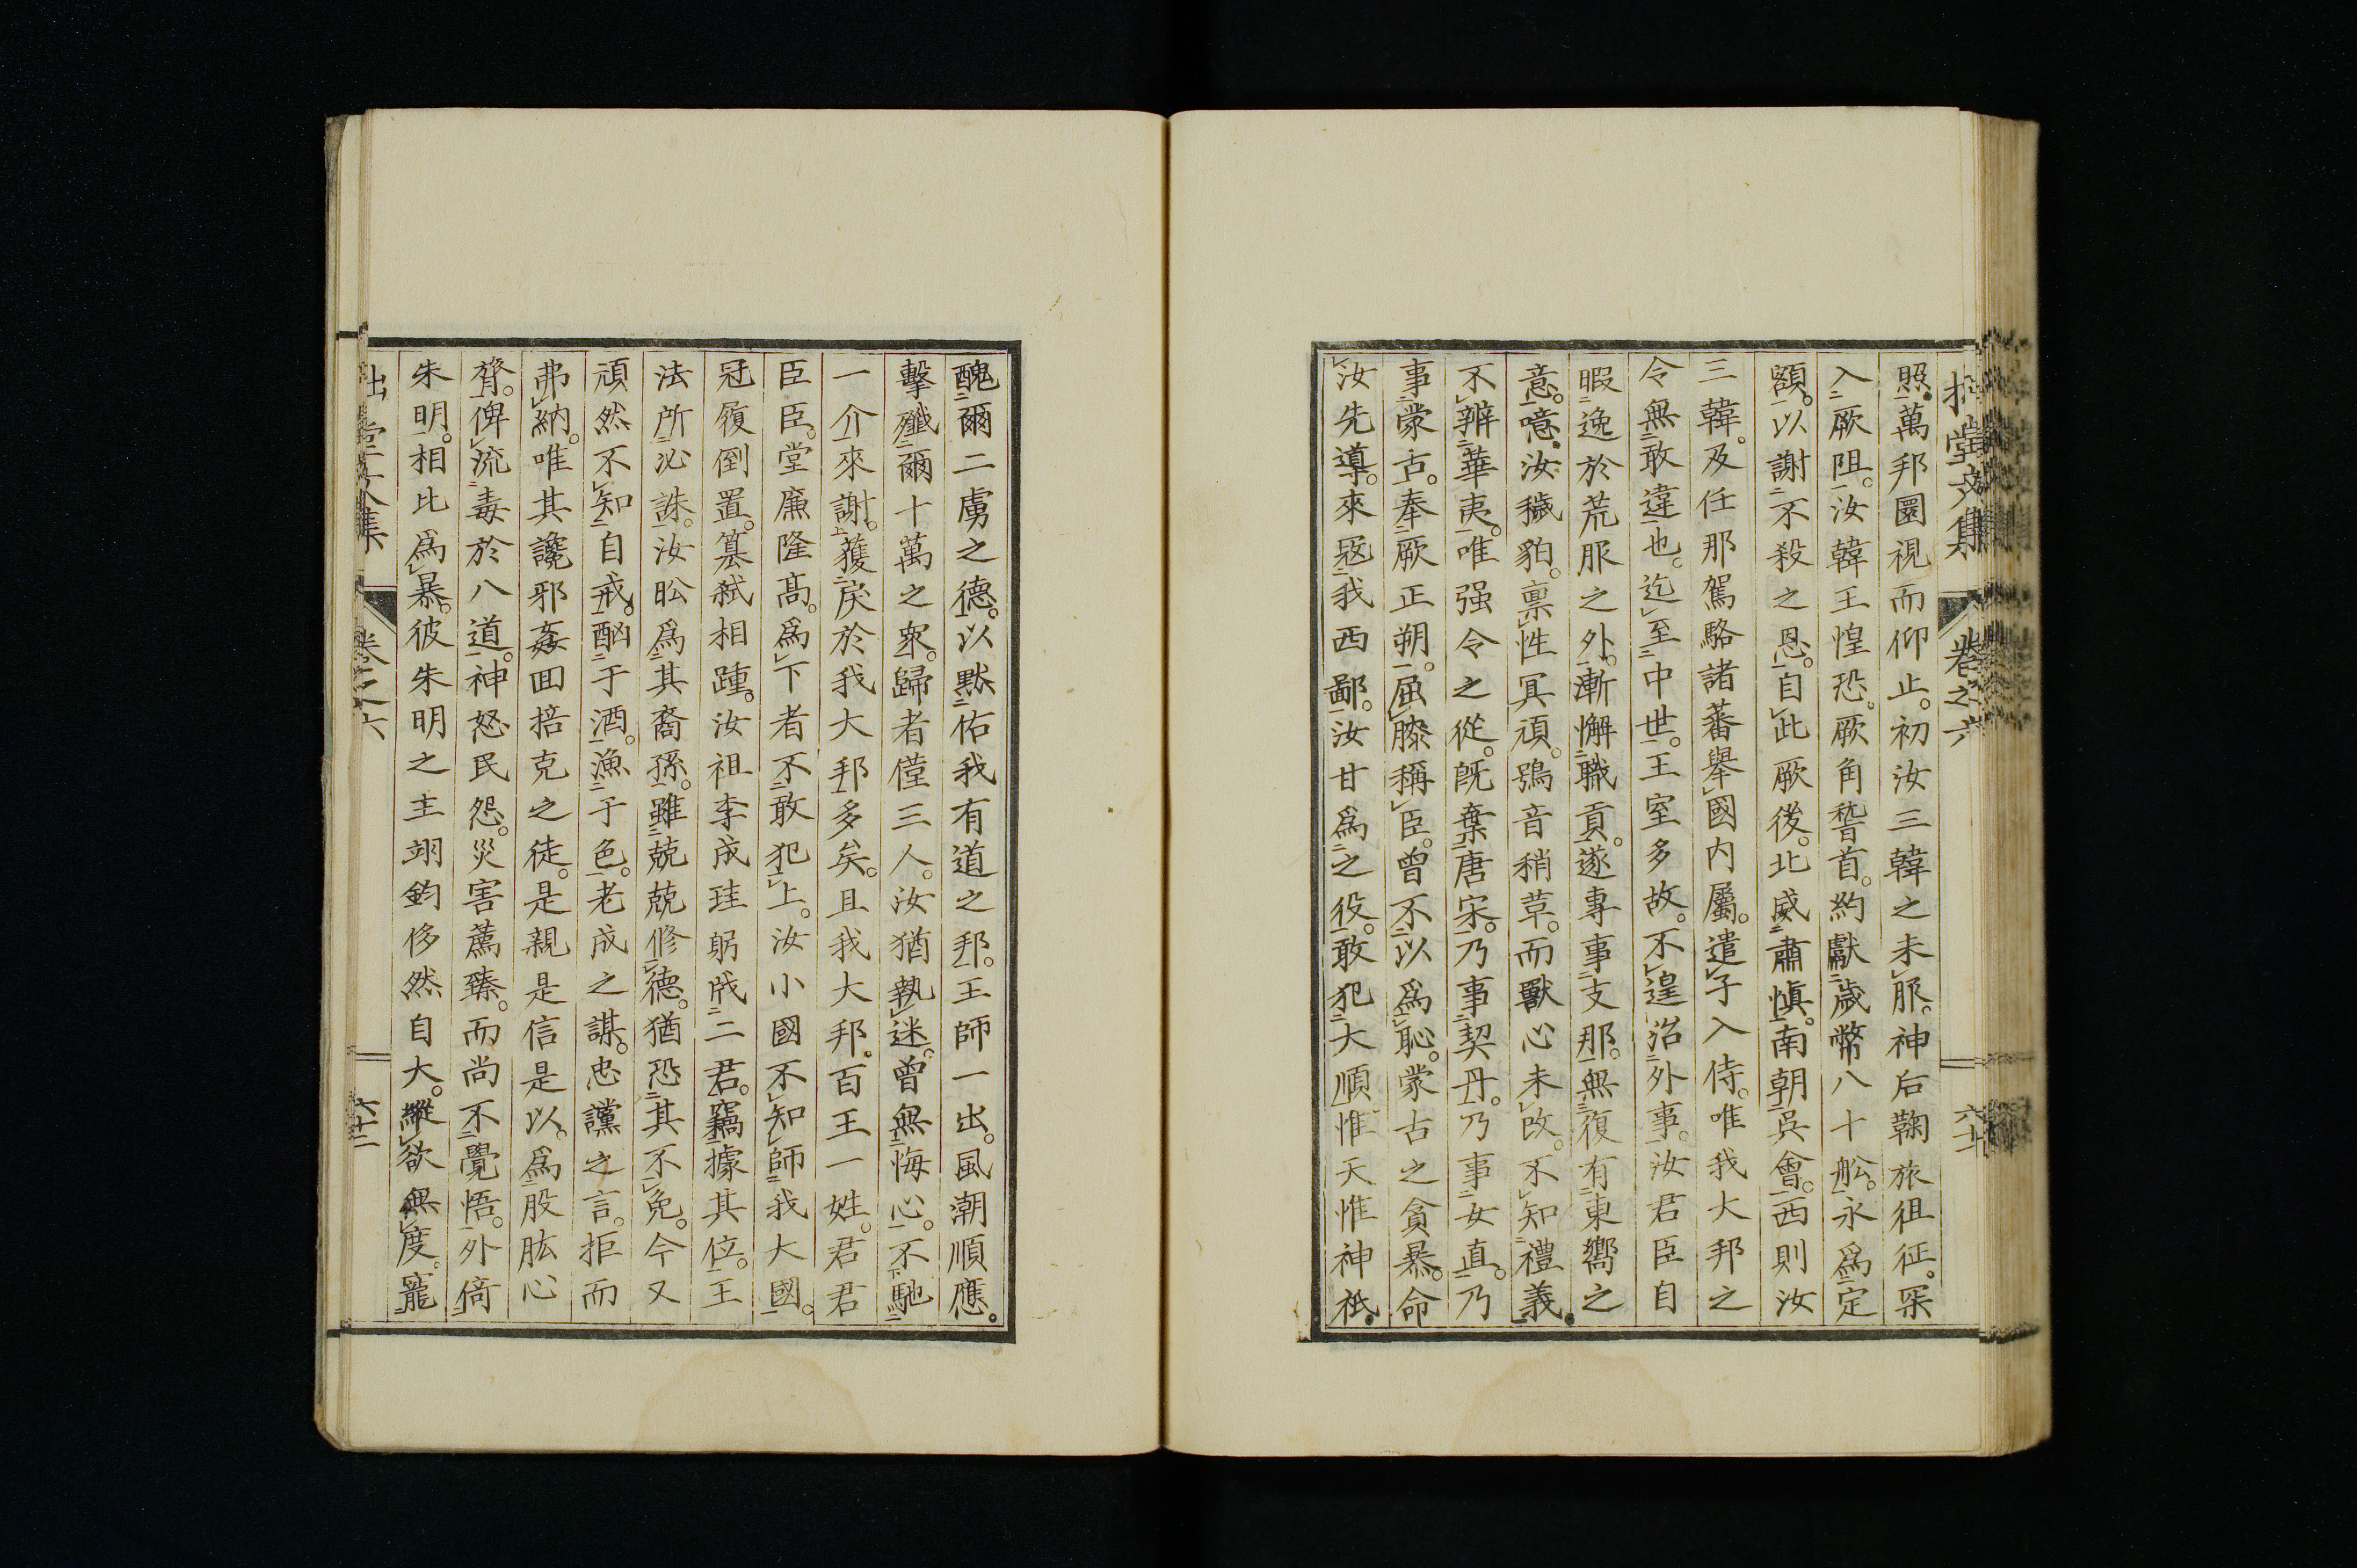 拙堂文集 卷之六 六十一
照萬邦圜視而仰止。初汝三韓之未服。神后鞠旅徂征。罙
入厥阻。汝韓王惶恐。厥角稽首。約獻歲幣八十舩。永爲定
額。以謝不殺之恩。自此厥後。北威肅愼。南朝吳會。西則汝
三韓。及任那駕駱諸蕃舉國内屬。遣子入侍。唯我大邦之
令無敢違也。迄至中世。王室多故。不遑治外事。汝君臣自
暇逸於荒服之外。漸懈職貢。遂專事支那。無復有東嚮之
意。噫。汝穢貊。禀性冥頑。鴞音稍革。而獸心未改。不知禮義。
不辨華夷。唯强令之從。既棄唐宋。乃事契丹。乃事女直。乃
事蒙古。奉厥正朔。屈膝稱臣。曾不以爲恥。蒙古之貪暴。命
汝先導。來寇我西鄙。汝甘爲之役。敢犯大順惟天惟神祇。
醜爾二虜之德。以默佑我有道之邦。王師一出。風潮順應。
擊殲爾十萬之衆。歸者僅三人。汝猶執迷。曾無悔心。不馳
一介來謝。獲戾於我大邦多矣。且我大邦。百王一姓。君君
臣臣。堂廉隆高。爲下者不敢犯上。汝小國不知師我大國。
冠履倒置。簒弑相踵。汝祖李成珪躬戕二君。竊據其位。王
法所必誅。汝昖爲其裔孫。雖兢兢修德。猶恐其不免。今又
頑然不知自戒。酗于酒。漁于色。老成之謀。忠讜之言。拒而
弗納。唯其讒邪姦回掊克之徒。是親是信是以。爲股肱心
膂。俾流毒於八道。神怒民怨。災害薦臻。而尚不覺悟。外倚
朱明。相比爲暴。彼朱明之主翊鈞侈然自大。縱欲無度。寵
堂文集 卷之六 六十二